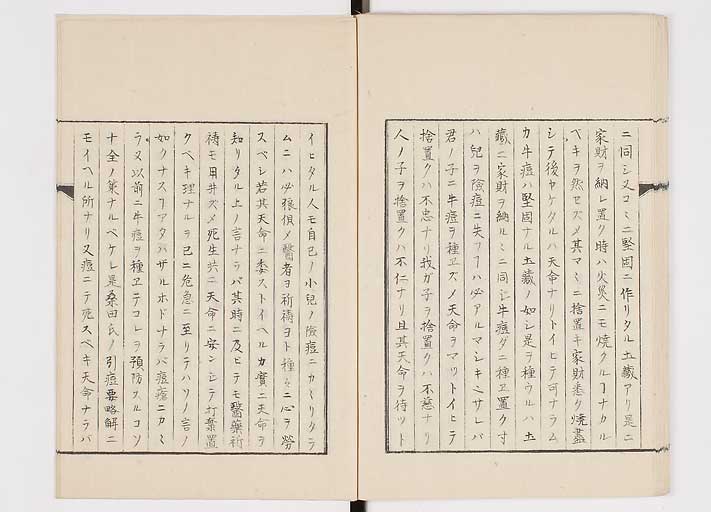 ニ同シ又コヽニ堅固ニ作リタル土藏アリ是ニ
家財ヲ納レ置ク時ハ火災ニモ燒クルヿナカル
ベキヲ然セズメ其マヽニ捨置キ家財悉ク燒盡
シテ後ヤケタルハ天命ナリトイヒテ可ナラム
カ牛痘ハ堅固ナル土藏ノ如シ是ヲ種ウルハ土
藏ニ家財ヲ納ルヽニ同シ牛痘ダニ種ヱ置ク寸
ハ兒ヲ險痘ニ失フヿハ必アルマシキヽサレバ
君ノ子ニ牛痘ヲ種ヱズノ天命ヲマツトイヒテ
捨置クハ不忠ナリ我ガ子ヲ捨置クハ不慈ナリ
人ノ子ヲ捨置クハ不仁ナリ且其天命ヲ待ツト
イヒタル人モ自己ノ小兒ノ險痘ニカヽリタラ
ムニハ必狼狽メ醫者ヲ祈禱ヨト種々ニ心ヲ勞
スベシ若其天命ニ委ストイヘルカ實ニ天命ヲ
知リタル上ノ言ナラバ其時ニ及ビテモ醫藥祈
禱モ用井ズメ死生共ニ天命ニ安ンシテ打棄置
クベキ理ナルヲ已ニ危急ニ至リテハソノ言ノ
如クナスヿアタハザルホドナラバ痘瘡ニカヽ
ラヌ以前ニ牛痘ヲ種ヱテコレヲ預防スルコソ
十全ノ策ナルベケレ是桑田氏ノ引痘要略解ニ
モイヘル所ナリ又痘ニテ死スベキ天命ナラバ